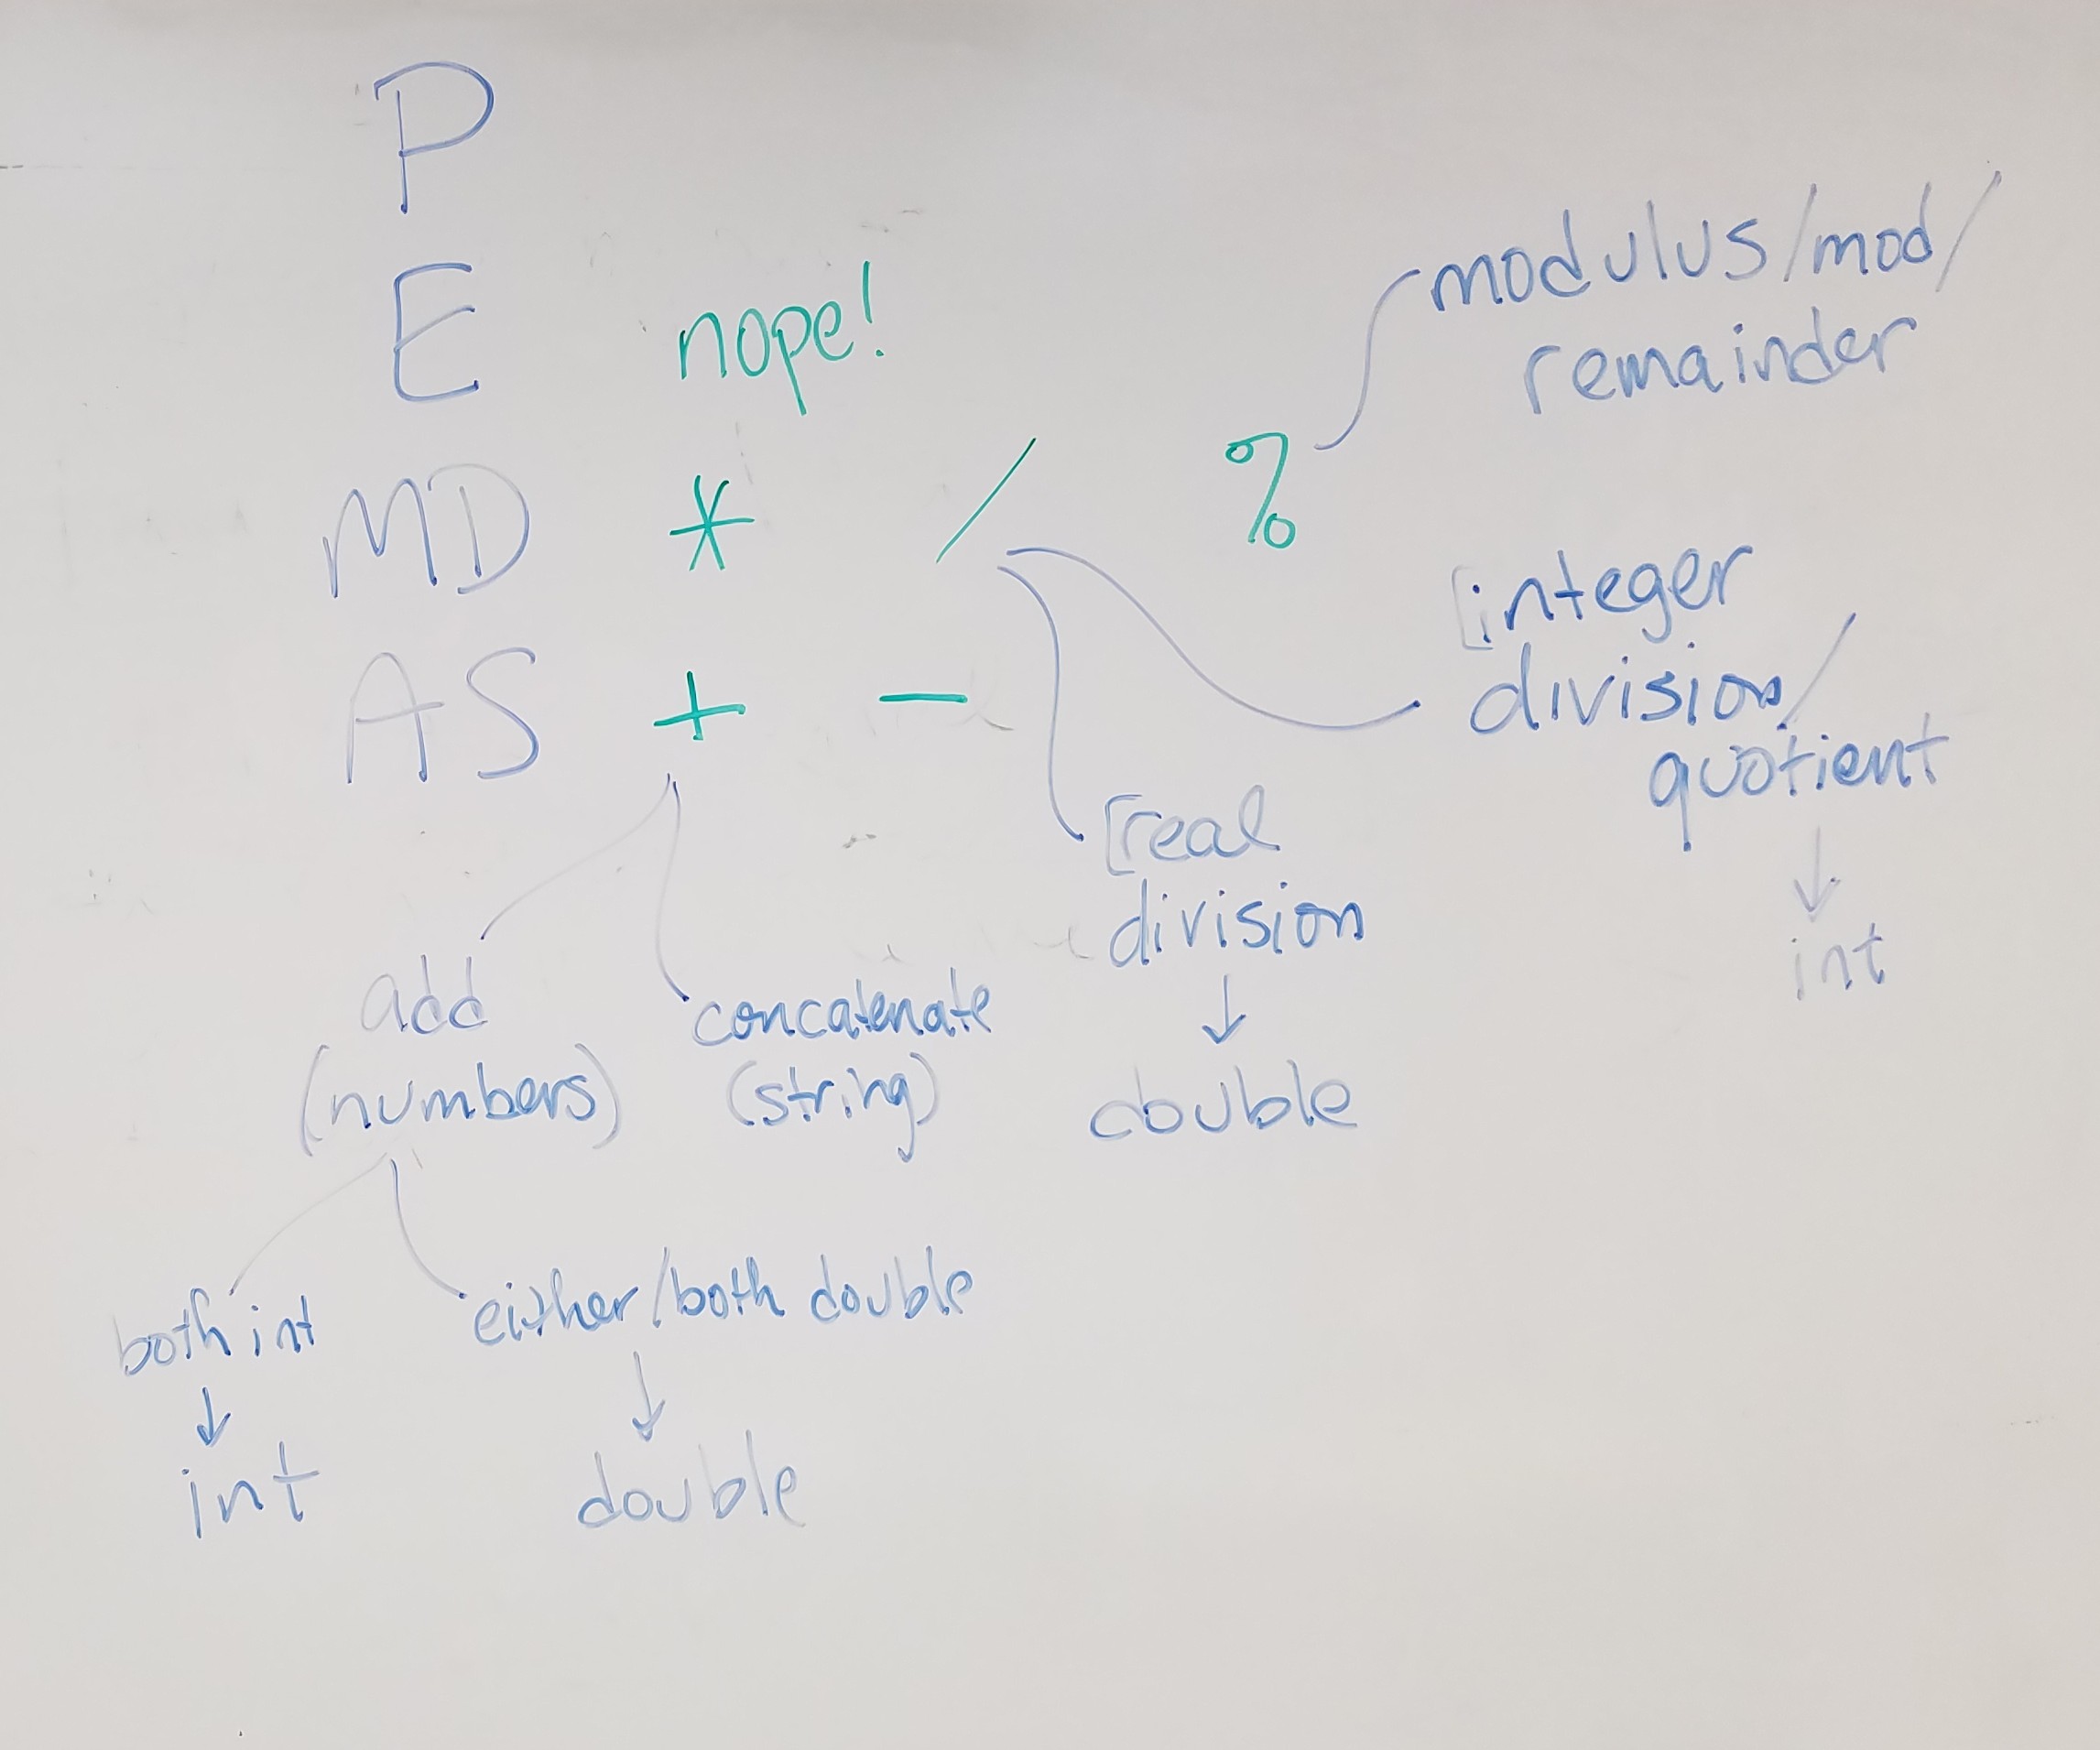 P
E nope!
modulus/mod/
remainder
MD * / %
[integer
division/
quotient
int
AS + -
[real
division
double
add
(numbers)
concatenate
(string)
both int
int
either/both double
double